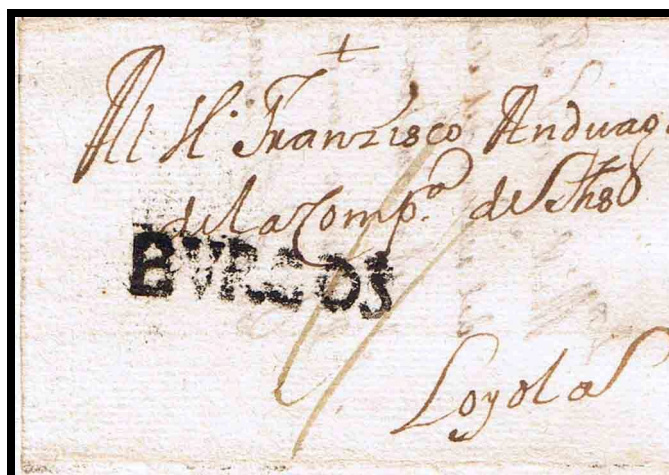 +
Al H. Franzisco Anduag
de la Comp.ª de Jhs
BVRGOS
Loyola